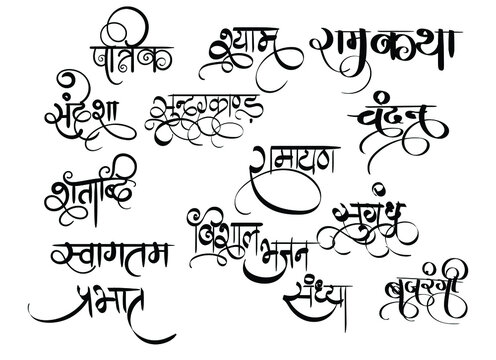 पत्रिक श्याम रामकथा
संदेशा सुन्दरकाण्ड चंदन
रामायण
शताब्दि सुगंध
स्वागतम विशाल भजन
प्रभात संध्या बजरंगी